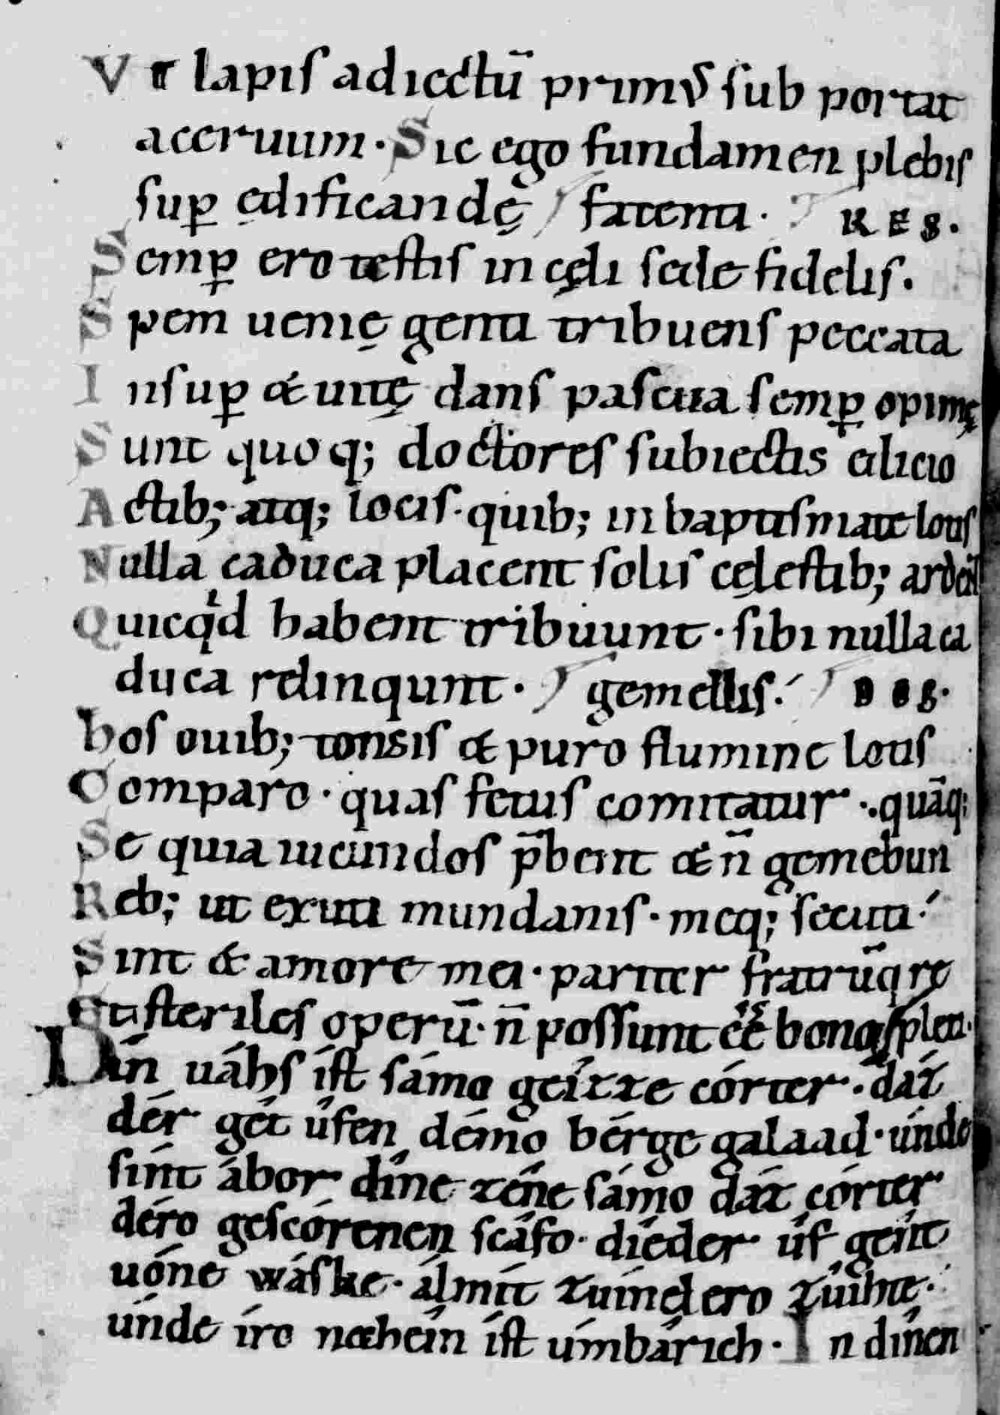 Vt lapis adiectū primꝰ sub portat
aceruum. Sic ego fundamen plebis
suꝑ ędificandę fatenti. RES.
Semꝑ ero testis in cęli sede fidelis.
Spem uenię genti tribuens peccata
Insuꝑ & uitę dans pascua semꝑ opimę
Sunt quoq; doctores subiectis cilicio
Actib; atq; locis. quib; in baptismate lotis
Nulla caduca placent solis cęlestib; ardent
Quicqd habent tribuunt. sibi nulla ca
duca relinqunt. gemellis.
hos ouib; tonsis & puro flumine lotis
Comparo. quas fetus comitatur. quāq;
Se quia iucundos p̄bent & n̄ gemebun
Reb; ut exuti mundanis. meq; secuti.
Sint & amore mei. pariter fratrūq re
steriles operū. n̄ possunt ēē bonoꝝ
Dín uáhs íst sámo geízze córter. dáz
dér gét ûfen démo bérge galaad. únde
sínt ábor díne zéne sámo dáz córter
déro gescórenen scâfo. díeder ûf gént
uóne wáske. álmít zuíndero zuíhte.
únde íro nohéin íst úmbárich. In dínen